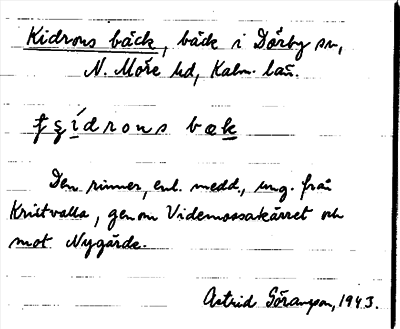 Kidrons bäck, bäck i Dörby sn,
N. Möre hd, Kalm. län.
bæk
Den rinner, enl. medd., ung. från
Kristvalla, genom Videmossakärret och
mot Nygärde.
Astrid Göransson, 1943.